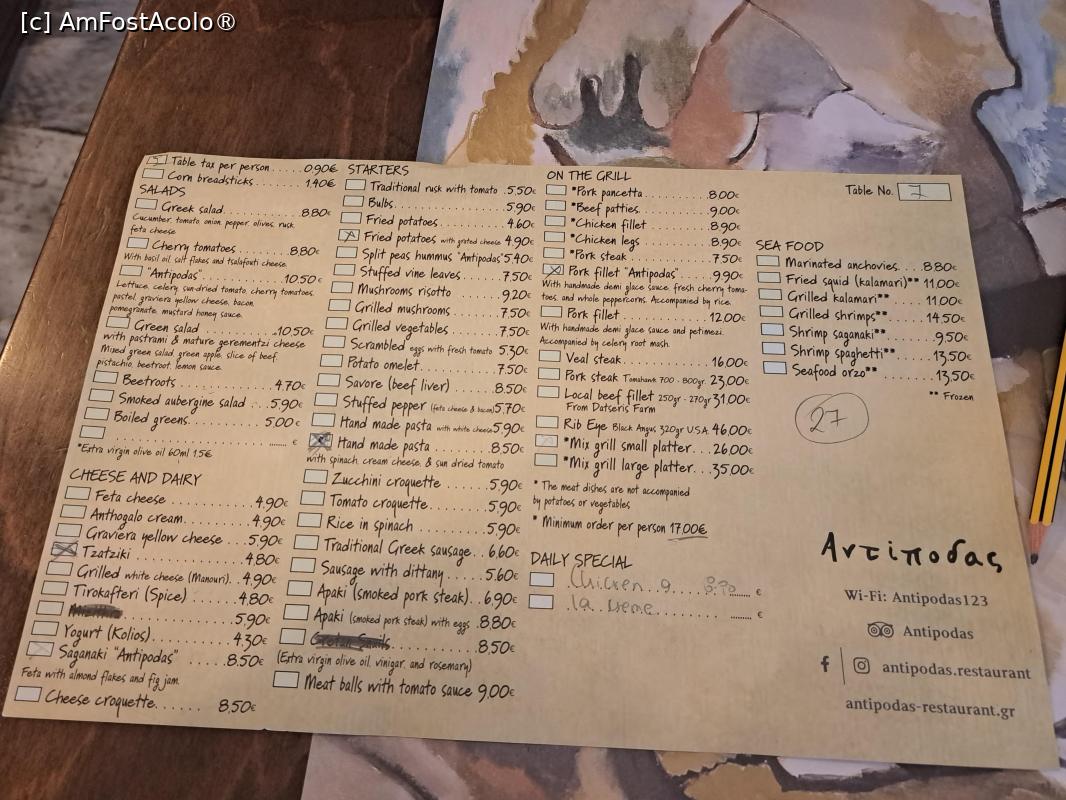 [c] AmFostAcolo®
Table tax per person...... 0.90€
Corn breadsticks...... 1.40€
SALADS
Greek salad...... 8.80€
Cucumber, tomato, onion, pepper, olives, rusk,
feta cheese
Cherry tomatoes...... 8.80€
With basil oil, salt flakes and tsalafouti cheese
"Antipodas"...... 10.50€
Lettuce, celery, sun-dried tomato, cherry tomatoes,
pastel, graviera yellow cheese, bacon,
pomegranate, mustard honey sauce.
Green salad...... 10.50€
with pastrami & mature gerementzi cheese
Mixed green salad, green apple, slice of beef,
pistachio, beetroot, lemon sauce.
Beetroots...... 4.70€
Smoked aubergine salad...5.90€
Boiled greens...... 5.00€
...... €
*Extra virgin olive oil 60ml 1.5€
CHEESE AND DAIRY
Feta cheese...... 4.90€
Anthogalo cream...... 4.90€
Graviera yellow cheese...... 5.90€
Tzatziki...... 4.80€
Grilled white cheese (Manouri)...4.90€
Tirokafteri (Spice)...... 4.80€
...... 5.90€
Yogurt (Kolios)...... 4.30€
Saganaki "Antipodas"...... 8.50€
Feta with almond flakes and fig jam.
Cheese croquette...... 8.50€
STARTERS
Traditional rusk with tomato.5.50€
Bulbs...... 5.90€
Fried potatoes...... 4.60€
Fried potatoes with grated cheese 4.90€
Split peas hummus "Antipodas"5.40€
Stuffed vine leaves...... 7.50€
Mushrooms risotto...... 9.20€
Grilled mushrooms...... 7.50€
Grilled vegetables...... 7.50€
Scrambled eggs with fresh tomato 5.30€
Potato omelet...... 7.50€
Savore (beef liver)...... 8.50€
Stuffed pepper (feta cheese & bacon)5.70€
Hand made pasta with white cheese5.90€
Hand made pasta...... 8.50€
with spinach, cream cheese, & sun dried tomato
Zucchini croquette...... 5.90€
Tomato croquette...... 5.90€
Rice in spinach...... 5.90€
Traditional Greek sausage..6.60€
Sausage with dittany...... 5.60€
Apaki (smoked pork steak)..6.90€
Apaki (smoked pork steak) with eggs.8.80€
Cretan Snails...... 8.50€
(Extra virgin olive oil, vinigar, and rosemary)
Meat balls with tomato sauce 9.00€
ON THE GRILL
*Pork pancetta...... 8.00€
*Beef patties...... 9.00€
*Chicken fillet...... 8.90€
*Chicken legs...... 8.90€
*Pork steak...... 7.50€
Pork fillet "Antipodas"...... 9.90€
With handmade demi glace sauce, fresh cherry toma-
toes, and whole peppercorns. Accompanied by rice.
Pork fillet...... 12.00€
With handmade demi glace sauce and petimezi.
Accompanied by celery root mash.
Veal steak...... 16.00€
Pork steak Tomahawk 700 - 800gr. 23.00€
Local beef fillet 250gr - 270gr 31.00€
From Datseris Farm
Rib Eye Black Angus 320gr U.S.A. 46.00€
*Mix grill small platter...26.00€
*Mix grill large platter...35.00€
* The meat dishes are not accompanied
by potatoes or vegetables
* Minimum order per person 17.00€
DAILY SPECIAL
Chicken a ...... €
la creme ...... €
Table No. 7
SEA FOOD
Marinated anchovies....8.80€
Fried squid (kalamari)** 11.00€
Grilled kalamari**...... 11.00€
Grilled shrimps**...... 14.50€
Shrimp saganaki**...... 9.50€
Shrimp spaghetti**...... 13.50€
Seafood orzo**...... 13.50€
** Frozen
27
Αντίποδας
Wi-Fi: Antipodas123
Antipodas
f antipodas.restaurant
antipodas-restaurant.gr